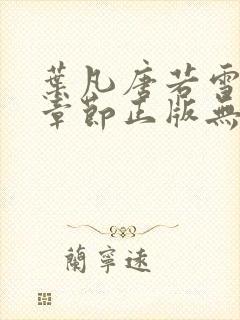 葉凡唐若雪
章節正版無
蘭寧遠